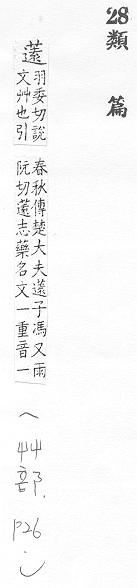 28類篇
薳羽委切說
文艸也引
春秋傳楚大夫薳子馮又雨
阮切薳志藥名文一重音一
(艸部.P26.)